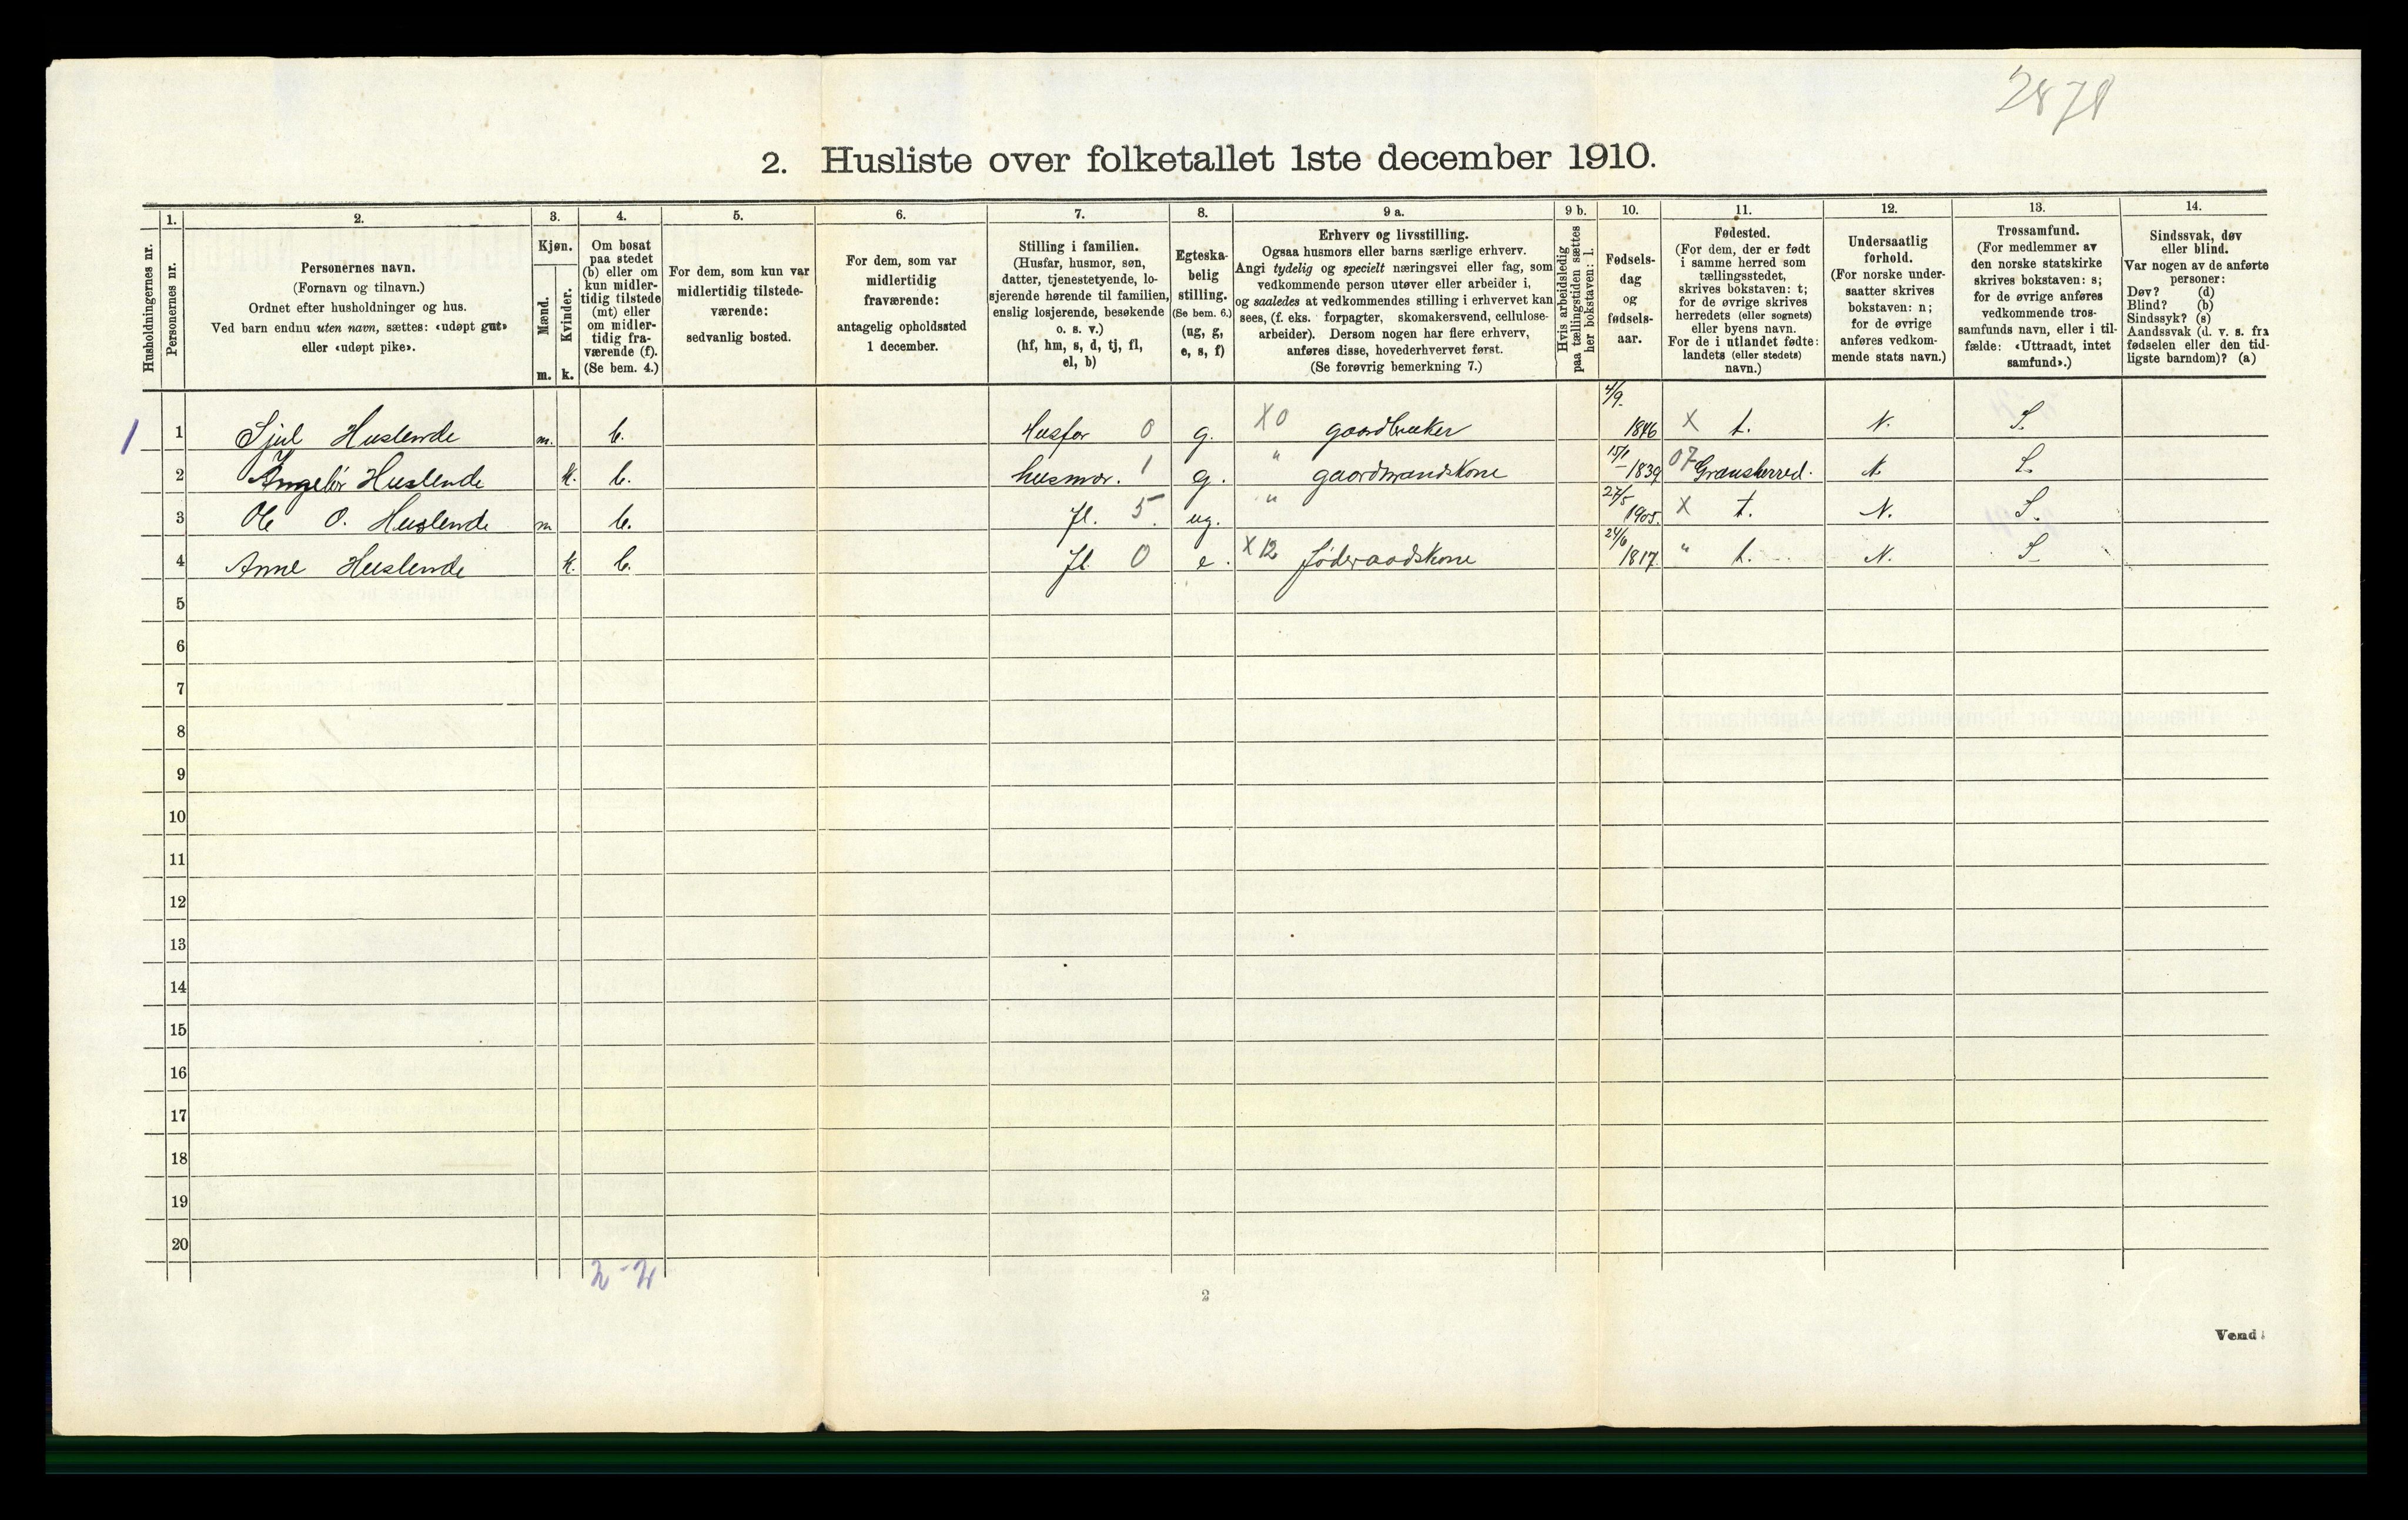 2871
2. Husliste over folketallet 1ste december 1910.
Husholdningernes nr.
1. Personernes nr.
2. Personernes navn.
(Fornavn og tilnavn.)
Ordnet efter husholdninger og hus.
Ved barn endnu uten navn, sættes: «udøpt gut»
eller «udøpt pike».
3. Kjøn.
Mænd. m.
Kvinder. k.
4. Om bosat
paa stedet
(b) eller om
kun midler-
tidig tilstede
(mt) eller
om midler-
tidig fra-
værende (f).
(Se bem. 4.)
5. For dem, som kun var
midlertidig tilstede-
værende:
sedvanlig bosted.
6. For dem, som var
midlertidig
fraværende:
antagelig opholdssted
1 december.
7. Stilling i familien.
(Husfar, husmor, søn,
datter, tjenestetyende, lo-
sjerende hørende til familien,
enslig losjerende, besøkende
o. s. v.)
(hf, hm, s, d, tj, fl,
el, b)
8. Egteska-
belig
stilling.
(Se bem. 6.)
(ug, g,
e, s, f)
9 a. Erhverv og livsstilling.
Ogsaa husmors eller barns særlige erhverv.
Angi tydelig og specielt næringsvei eller fag, som
vedkommende person utøver eller arbeider i,
og saaledes at vedkommendes stilling i erhvervet kan
sees, (f. eks. forpagter, skomakersvend, cellulose-
arbeider). Dersom nogen har flere erhverv,
anføres disse, hovederhvervet først.
(Se forøvrig bemerkning 7.)
9 b. Hvis arbeidsledig
paa tællingstiden sættes
her bokstaven: l.
10. Fødsels-
dag
og
fødsels-
aar.
11. Fødested.
(For dem, der er født
i samme herred som
tællingsstedet,
skrives bokstaven: t;
for de øvrige skrives
herredets (eller sognets)
eller byens navn.
For de i utlandet fødte:
landets (eller stedets)
navn.)
12. Undersaatlig
forhold.
(For norske under-
saatter skrives
bokstaven: n;
for de øvrige
anføres vedkom-
mende stats navn.)
13. Trossamfund.
(For medlemmer av
den norske statskirke
skrives bokstaven: s;
for de øvrige anføres
vedkommende tros-
samfunds navn, eller i til-
fælde: «Uttraadt, intet
samfund».)
14. Sindssvak, døv
eller blind.
Var nogen av de anførte
personer:
Døv? (d)
Blind? (b)
Sindssyk? (s)
Aandssvak (d. v. s. fra
fødselen eller den tid-
ligste barndom)? (a)
1 1 Sjul Huslende m. b. Husfar 0 g. X0 gaardbruker 4/9. 1846 X t. N. S.
2 Ingebør Huslende k. b. husmor. 1 g. " gaardmandskone 15/1 1839 07 Gransherred. N. S.
3 Ole O. Huslende m b. fl. 5. ug. " 27/5 1905. X t. N. S.
4 Anne Huslende k. b. fl 0 e. X12 føderaadskone 24/6 1817. " t. N. S.
5
6
7
8
9
10
11
12
13
14
15
16
17
18
19
20
2-2
2
Vend!